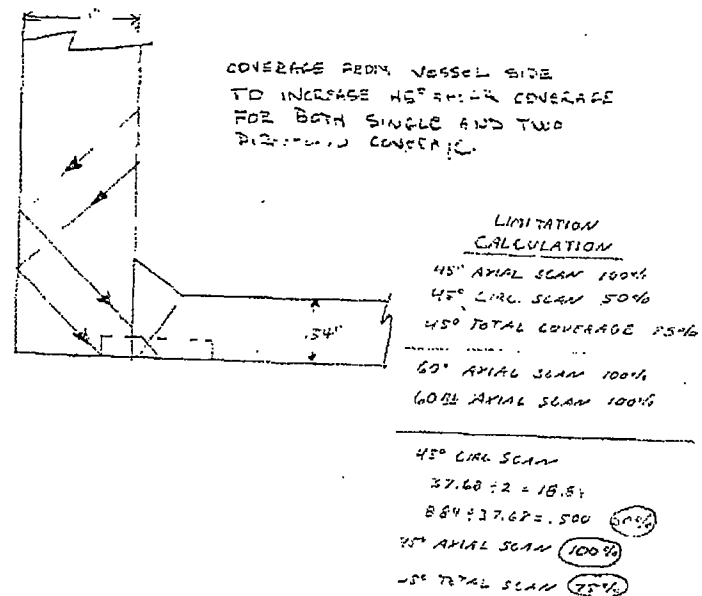 1"
COVERAGE FROM VESSEL SIDE
TO INCREASE 45° COVERAGE
FOR BOTH SINGLE AND TWO
LIMITATION
CALCULATION
45° AXIAL SCAN 100%
45° CIRC. SCAN 50%
45° TOTAL COVERAGE 75%
.34"
60° AXIAL SCAN 100%
60 AXIAL SCAN 100%
45° CIRC SCAN
37.68 ÷ 2 = 18.84
884 ÷ 37.68 = .500 50%
45° AXIAL SCAN 100%
45° TOTAL SCAN 75%